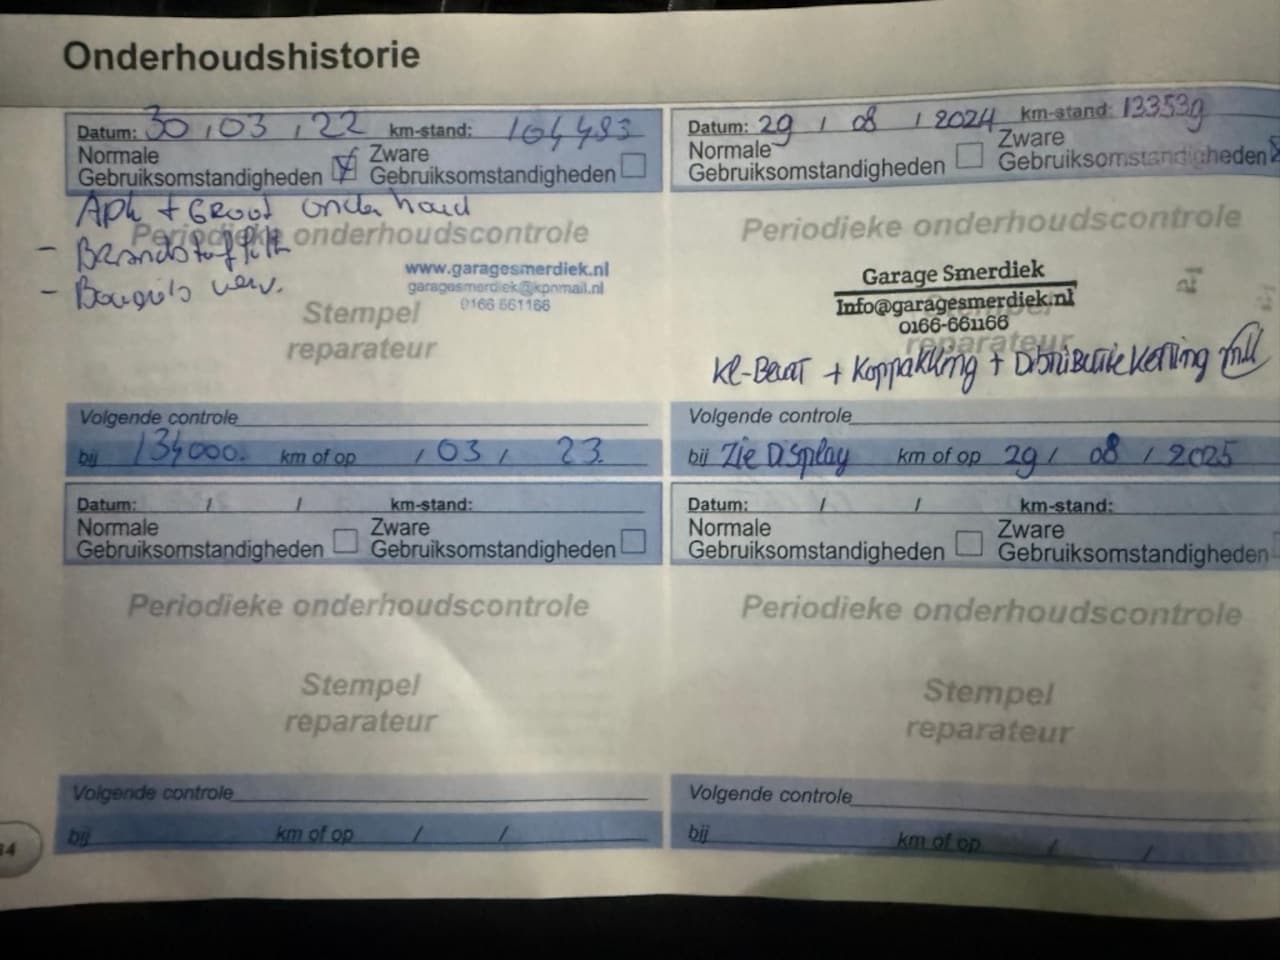 Onderhoudshistorie
Datum: 30 / 03 / 22 km-stand: 104483
Normale Gebruiksomstandigheden Zware Gebruiksomstandigheden
APK + Groot onderhoud
Periodieke onderhoudscontrole
- Brandstoffilt
- Bougie's verv.
www.garagesmerdiek.nl
garagesmerdiek@kpnmail.nl
0166 661166
Stempel
reparateur
Volgende controle
bij 134000. km of op / 03 / 23.
Datum: 29 / 08 / 2024 km-stand: 133539
Normale Gebruiksomstandigheden Zware Gebruiksomstandigheden
Periodieke onderhoudscontrole
Garage Smerdiek
Info@garagesmerdiek.nl
0166-661166
reparateur
Kl-Beurt + Koppakking + Distributie ketting
Volgende controle
bij Zie Display km of op 29 / 08 / 2025
Datum: / / km-stand:
Normale Gebruiksomstandigheden Zware Gebruiksomstandigheden
Periodieke onderhoudscontrole
Stempel
reparateur
Volgende controle
bij km of op / /
Datum: / / km-stand:
Normale Gebruiksomstandigheden Zware Gebruiksomstandigheden
Periodieke onderhoudscontrole
Stempel
reparateur
Volgende controle
bij km of op / /